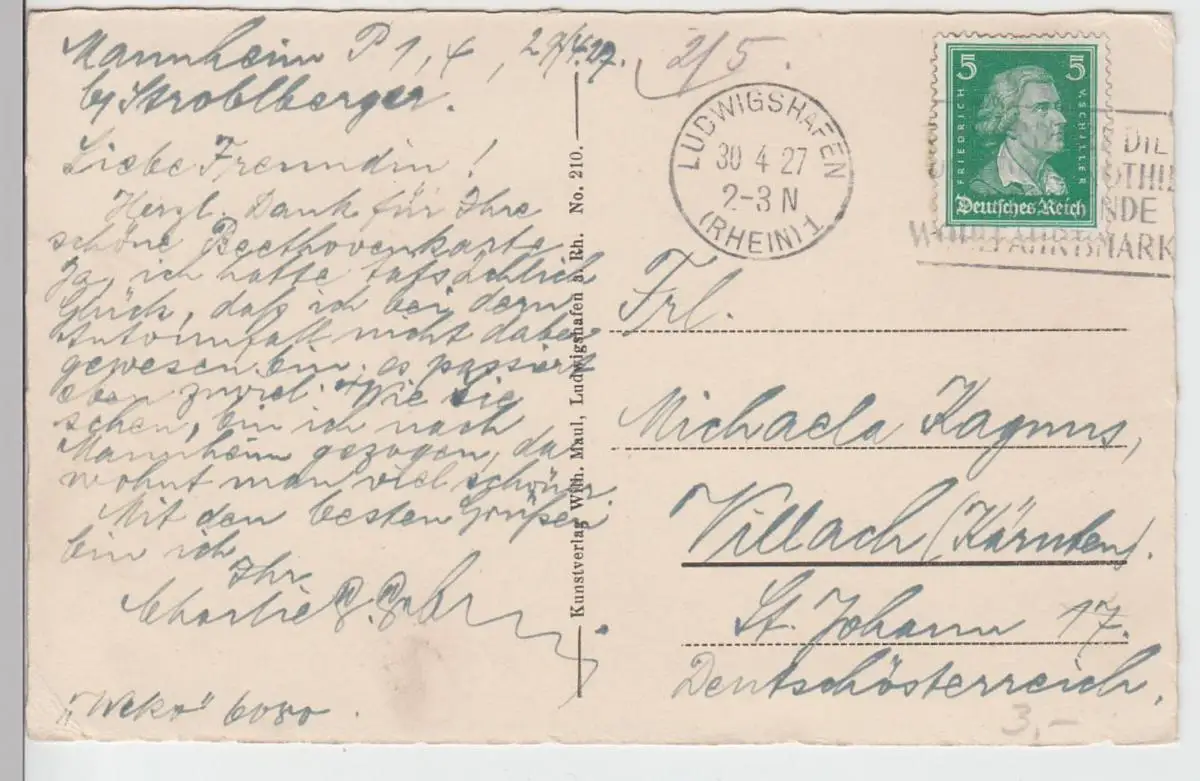 Mannheim P 1, 4, 29/4.27.
by Stroblberger.
Liebe Freundin!
Herzl. Dank für Ihre
schöne Beethovenkarte
Ja, ich hatte tatsächlich
Glück, daß ich bei dem
Autounfall nicht dabei
gewesen bin, es passiert
eben zuviel. Wie Sie
sehen, bin ich nach
Mannheim gezogen, da
wohnt man viel schöner.
Mit den besten Grüßen
bin ich
Ihr
Charlie
"Weko" 6080.
Kunstverlag Wilh. Maul, Ludwigshafen a. Rh. No. 210.
2/5.
LUDWIGSHAFEN
30 4 27
2-3 N
(RHEIN) 1
5 5
FRIEDRICH V. SCHILLER
Deutsches Reich
DIE
NDE
WOHLFAHRTSMARK
Frl.
Michaela Kagnus,
Villach (Kärnten).
St. Johann 17.
Deutschösterreich.
3,-